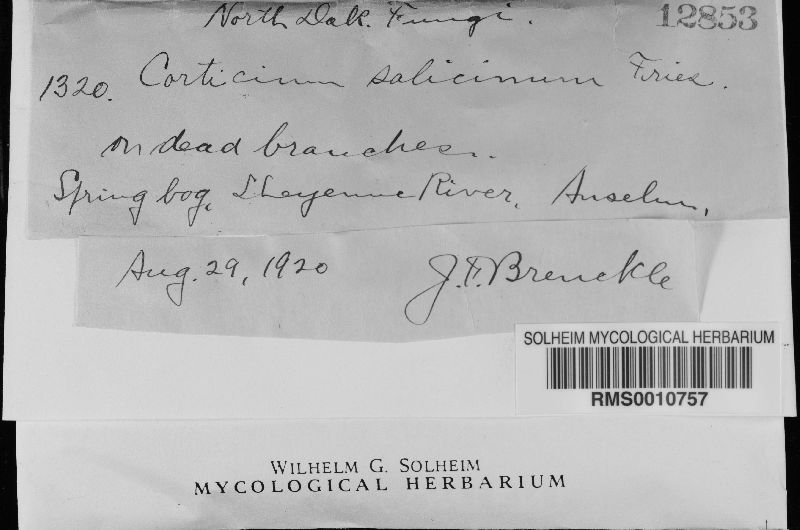 North Dak. Fungi. 12853
1320. Corticium salicinum Fries.
on dead branches.
Spring bog, Sheyenne River, Anselm,
Aug. 29, 1920 J. F. Brenckle
SOLHEIM MYCOLOGICAL HERBARIUM
RMS0010757
WILHELM G. SOLHEIM
MYCOLOGICAL HERBARIUM